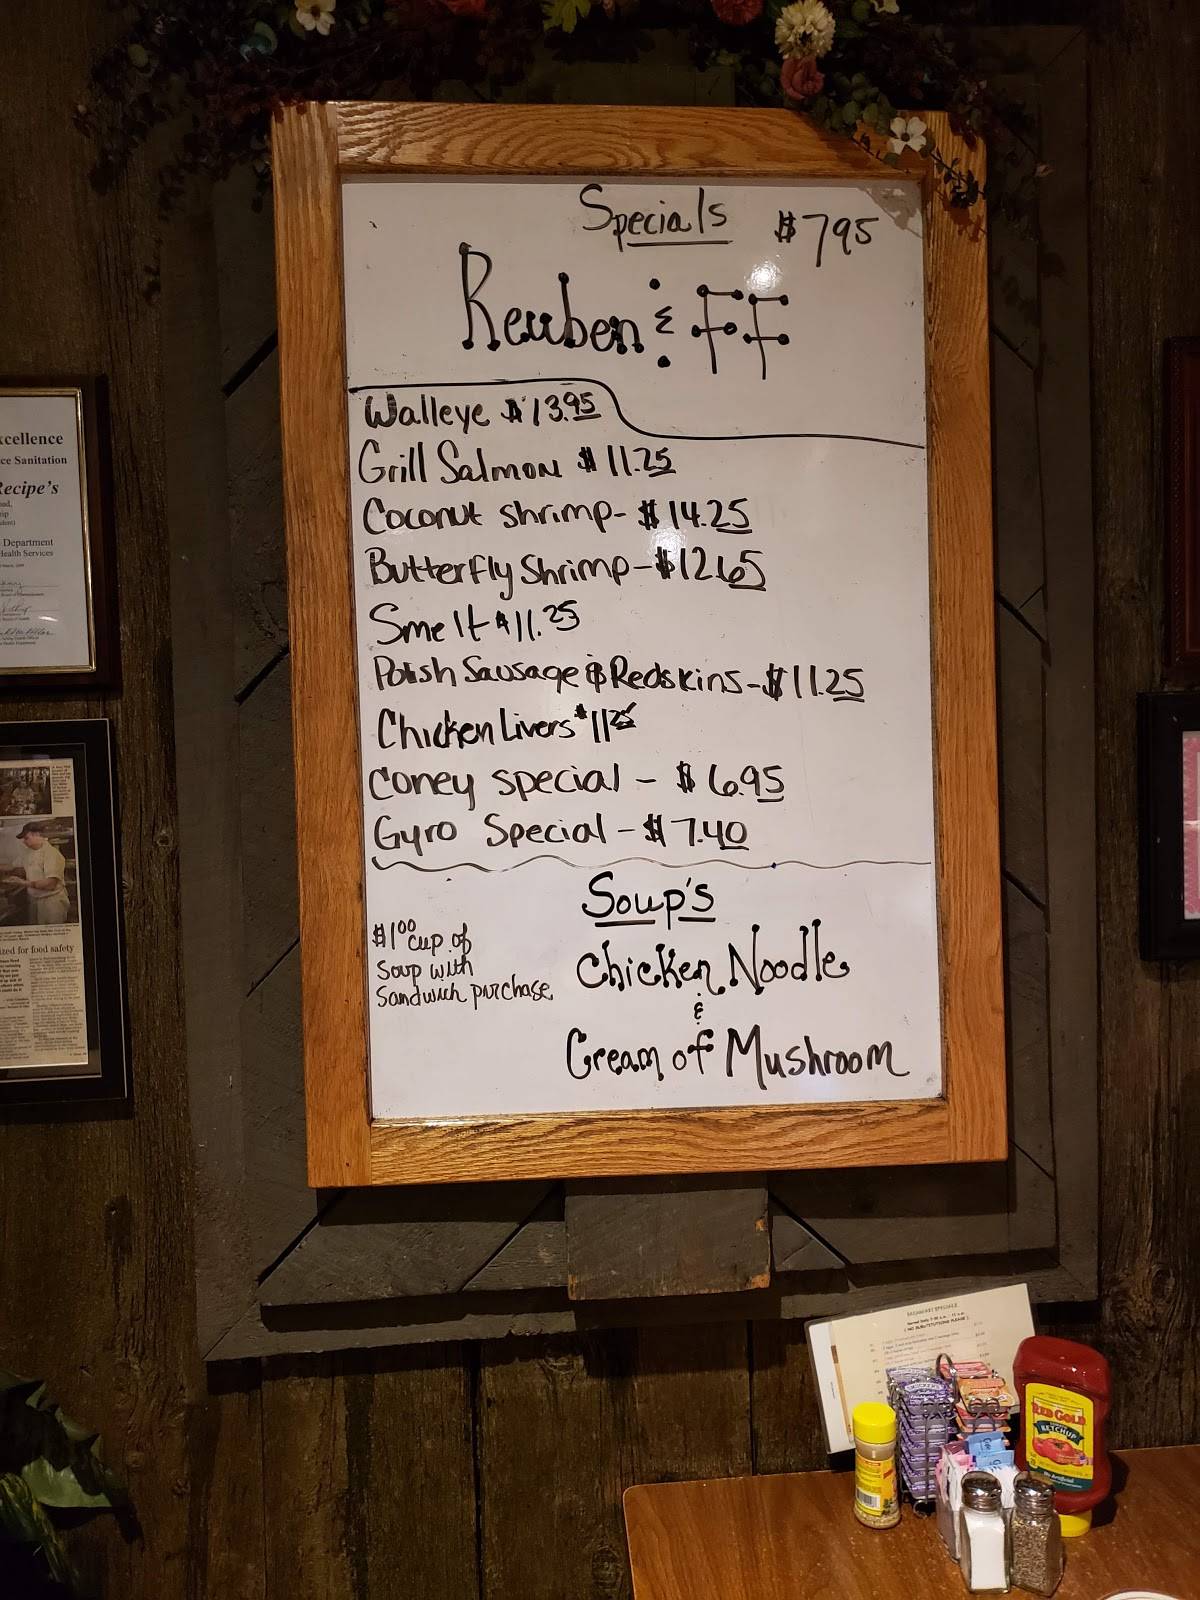 Specials $7.95
Reuben & FF
Walleye $13.95
Grill Salmon $11.25
Coconut shrimp- $14.25
Butterfly Shrimp-$12.65
Smelt $11.25
Polish Sausage & Redskins-$11.25
Chicken Livers $11.25
Coney special - $6.95
Gyro Special - $7.40
Soup's
$1.00 cup of
soup with
Sandwich purchase
Chicken Noodle
&
Cream of Mushroom
xcellence
ce Sanitation
Recipe's
Department
Health Services
zed for food safety
BREAKFAST SPECIALS
( NO SUBSTITUTIONS PLEASE )
RED GOLD
KETCHUP